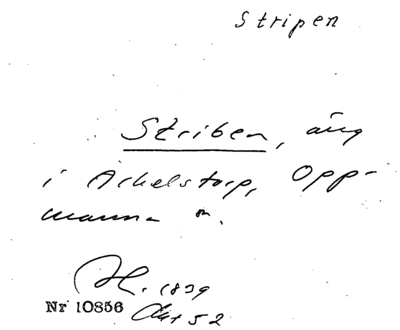 Stripen
Striben, äng
i Arkelstorp, Opp-
manna sn.
1839
Nr 10856 Akt 52